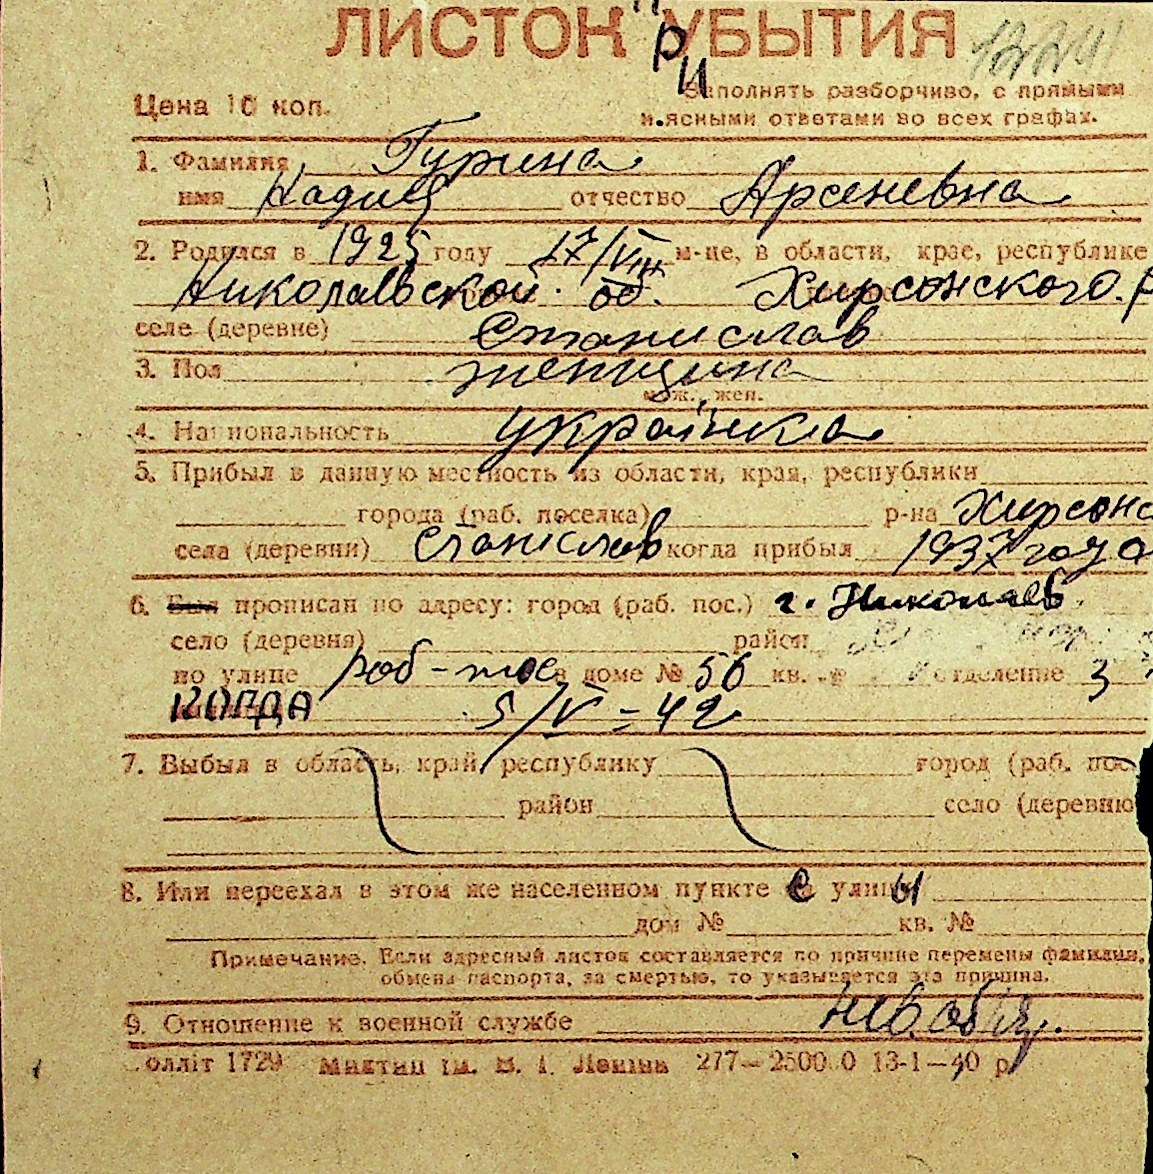 ЛИСТОК ПРИБЫТИЯ
Цена 10 коп.
Заполнять разборчиво, с прямыми
и ясными ответами во всех графах.
1. Фамилия Гурина
имя Надия отчество Арсеневна
2. Родился в 1925 году 17/VIII м-це, в области, крае, республике
Николаевской об. Хирсонского р
селе (деревне) Станислав
3. Пол женщина
муж., жен.
4. Национальность украінка
5. Прибыл в данную местность из области, края, республики
города (раб. поселка) р-на Хирсонс
села (деревни) Станіслав когда прибыл 1937 году
6. Был прописан по адресу: город (раб. пос.) г. Николаев
село (деревня) район
по улице роб-
в доме № 56 кв. отделение 3
КОГДА 5/V-42
7. Выбыл в область, край, республику город (раб. пос.
район село (деревню
8. Или переехал в этом же населенном пункте с улицы
дом № кв. №
Примечание. Если адресный листок составляется по причине перемены фамилии,
обмена паспорта, за смертью, то указывается эта причина.
9. Отношение к военной службе
олліт 1729 ім. В. І. Леніна 277—2500 0 13-1—40 р